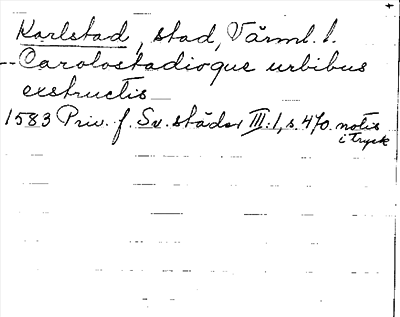 Karlstad, stad, Värml. l.
-- Carolostadioque urbibus
exstructis
1583 Priv. f. Sv. städer III:1, s. 470. notis
i tryck